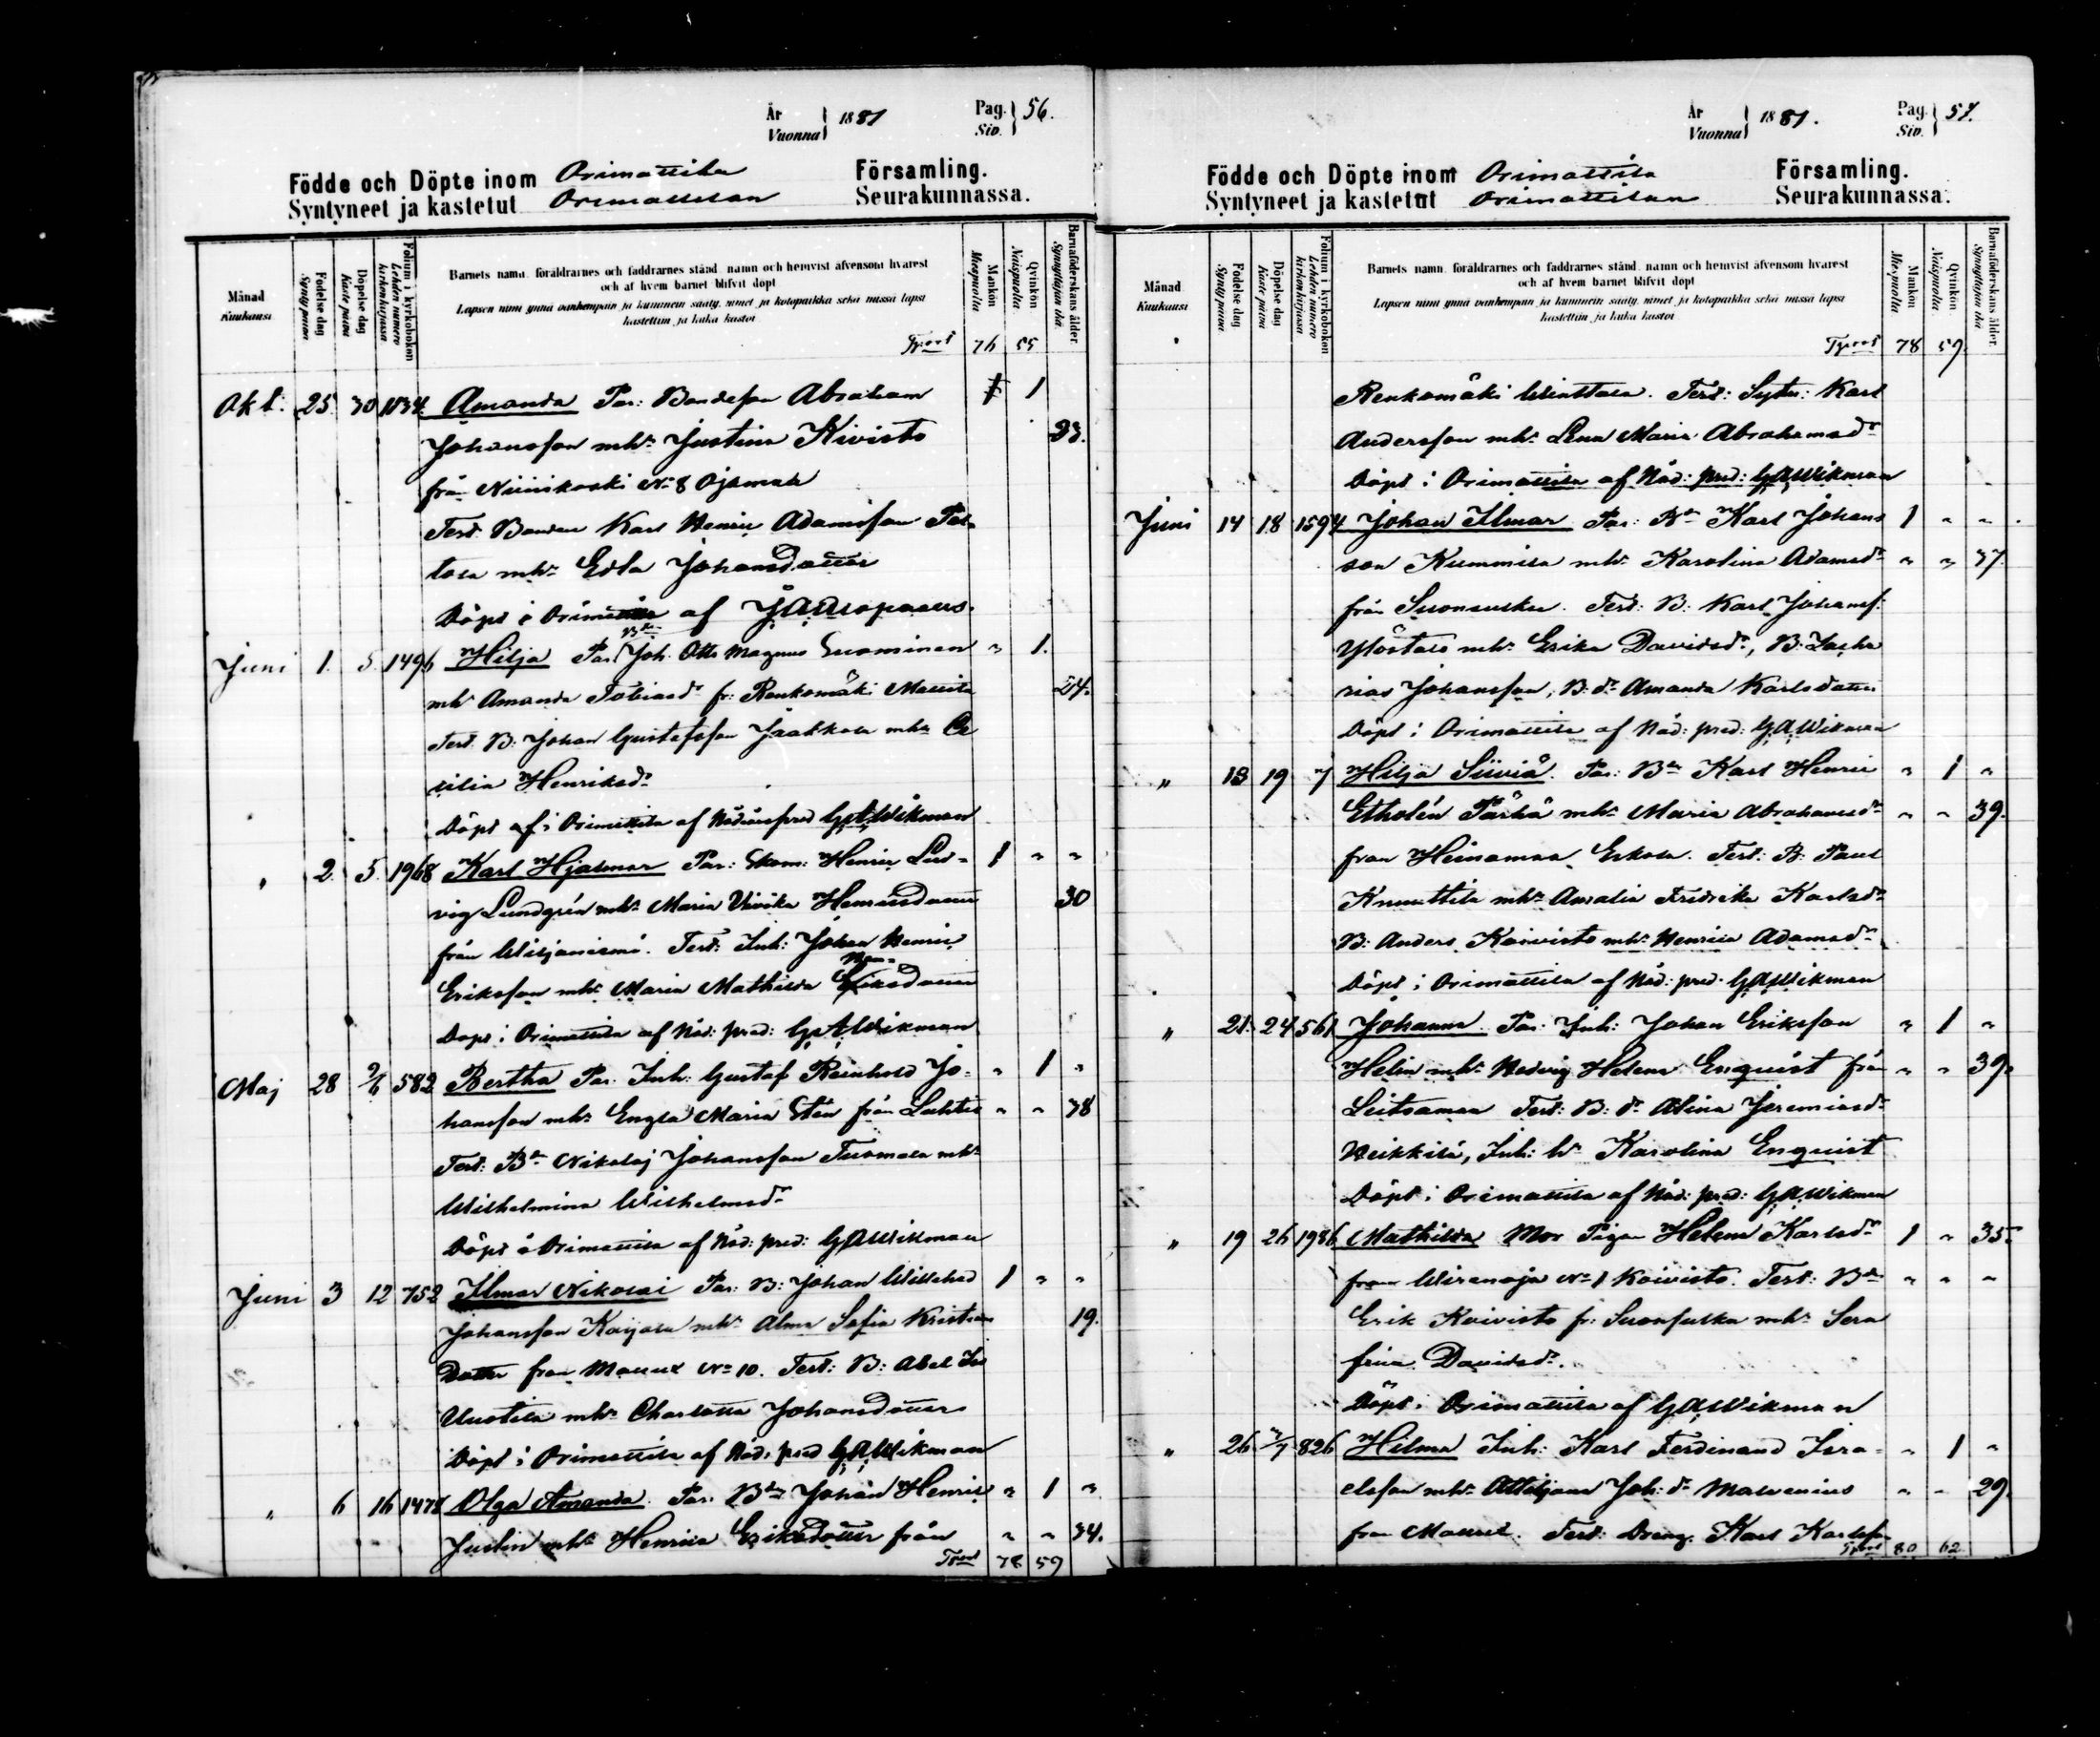 År Vuonna 1881 Pag. Siv. 56.
Födde och Döpte inom Orimattila Församling.
Syntyneet ja kastetut Orimattilan Seurakunnassa.
Månad Kuukausi
Födelse dag Synty päivä
Döpelse dag Kaste päivä
Folium i kyrkoboken Lehden numero kirkonkirjassa
Barnets namn, föräldrarnes och faddrarnes stånd, namn och hemvist äfvensom hvarest
och af hvem barnet blifvit döpt
Lapsen nimi ynnä vanhempain ja kummein sääty, nimet ja kotopaikka sekä missä lapsi
kastettiin ja kuka kastoi
Mankön Miespuolia
Qvinkön Naispuolia
Barnaföderskans ålder. Synnyttäjän ikä.
Tport 76 55
Okt. 25 30 1034 Amanda För: Bondeson Abraham 1
Johansson mhu Justina Kivistö 23.
från Niinikoski No 8 Ojamaa
Test: Bonden Karl Henric Adamsson
mhu Edla Johansdotter
Döpt i Orimattila af
Juni 1. 5. 1496 Hilja För: Bdn Joh. Otto Magnus Suominen " 1.
mhu Amanda Tobiasdr fr: Renkomäki Mattila 24.
Test. B: Johan Gustafsson Jaakkola mhu Ce
cilia Henriksdr
Döpt i Orimattila af Nådårspred GAWikman
" 2. 5. 1968 Karl Hjalmar För: Skom: Henric Lud- 1 " "
vig Lundgrén mhu Maria Vivika Henricsdotter 30
från Wiljaniemi. Test: Inh: Johan Henric
Eriksson mhu Maria Mathilda
Döpt i Orimattila af Nåd: pred: GAWikman
Maj 28 9/6 582 Bertha För: Inh: Gustaf Reinhold Jo- " 1 "
hansson mhu Engla Maria Stén från Luhtis " " 38
Test: Bdn Nikolaj Johansson Tuomala mhu
Wilhelmina Wilhelmsdr
Döpt i Orimattila af Nåd: pred: GAWikman
Juni 3 12 752 Ilmar Nikolai För: B: Johan Willehad 1 " "
Johansson Kaijala mhu Alma Sofia Kristians 19.
dotter från Mallus No 10. Test: B: Abel
Uustila mhu Charlotta Johansdotter
Döpt i Orimattila af Nåd. pred GAWikman
" 6 16 1478 Olga Amanda. För: Bdn Johan Henric " 1 "
Juslin mhu Henrica Eriksdotter från " " 34.
Tport 78 59
År Vuonna 1881. Pag. Siv. 57.
Födde och Döpte inom Orimattila Församling.
Syntyneet ja kastetut Orimattilan Seurakunnassa.
Månad Kuukausi
Födelse dag Synty päivä
Döpelse dag Kaste päivä
Folium i kyrkoboken Lehden numero kirkonkirjassa
Barnets namn, föräldrarnes och faddrarnes stånd, namn och hemvist äfvensom hvarest
och af hvem barnet blifvit döpt
Lapsen nimi ynnä vanhempain ja kummein sääty, nimet ja kotopaikka sekä missä lapsi
kastettiin ja kuka kastoi
Mankön Miespuolia
Qvinkön Naispuolia
Barnaföderskans ålder. Synnyttäjän ikä.
Tport 78 59.
Renkomäki Test: Sytn: Karl
Andersson mhu Lena Maria Abrahamsdr
Döpt i Orimattila af Nåd: pred: GAWikman
Juni 14 18 1594 Johan Ilmar För: Bdn Karl Johans 1 " "
son Kummila mhu Karolina Adamsdr " " 37.
från Suonsulka. Test: B: Karl Johanss:
Ylöstalo mhu Erika Davidsdr, B: Zacha
rias Johansson, B: dr Amanda Karlsdotter
Döpt i Orimattila af Nåd: pred: GAWikman
" 13 19 7 Hilja Siiviä. För: Bdn Karl Henric " 1 "
Etholén Pärhä mhu Maria Abrahamsdr " " 39.
från Heinamaa Erkola. Test: B: Paul
Knuuttila mhu Amalia Fredrika Karlsdr
B: Anders Koivisto mhu Henrica Adamsdr
Döpt i Orimattila af Nåd: pred: GAWikman
" 21. 24 561 Johanna För: Inh: Johan Eriksson " 1 "
Helin mhu Hedvig Helena Enqvist från " " 39.
Leitsamaa Test: B: dr Alina Jeremiasdr
Heikkilä, Inh: hu Karolina Enquist
Döpt i Orimattila af Nåd: pred: GAWikman
" 19 26 1986 Mathilda Mor Pigan Helena Karlsdr 1 " 35.
från Wirenoja No 1 Koivisto. Test: Bdn " " "
Erik Koivisto fr: Suonsulka mhu Sera
fina Davidsdr.
Döpt i Orimattila af GAWikman
" 26 3/7 826 Hilma Inh: Karl Ferdinand Isra- " 1 "
elsson mhu Joh: dr Malvenius " - 29.
från Mallus. Test: Dreng. Karl Karlsson
Tport 80 62